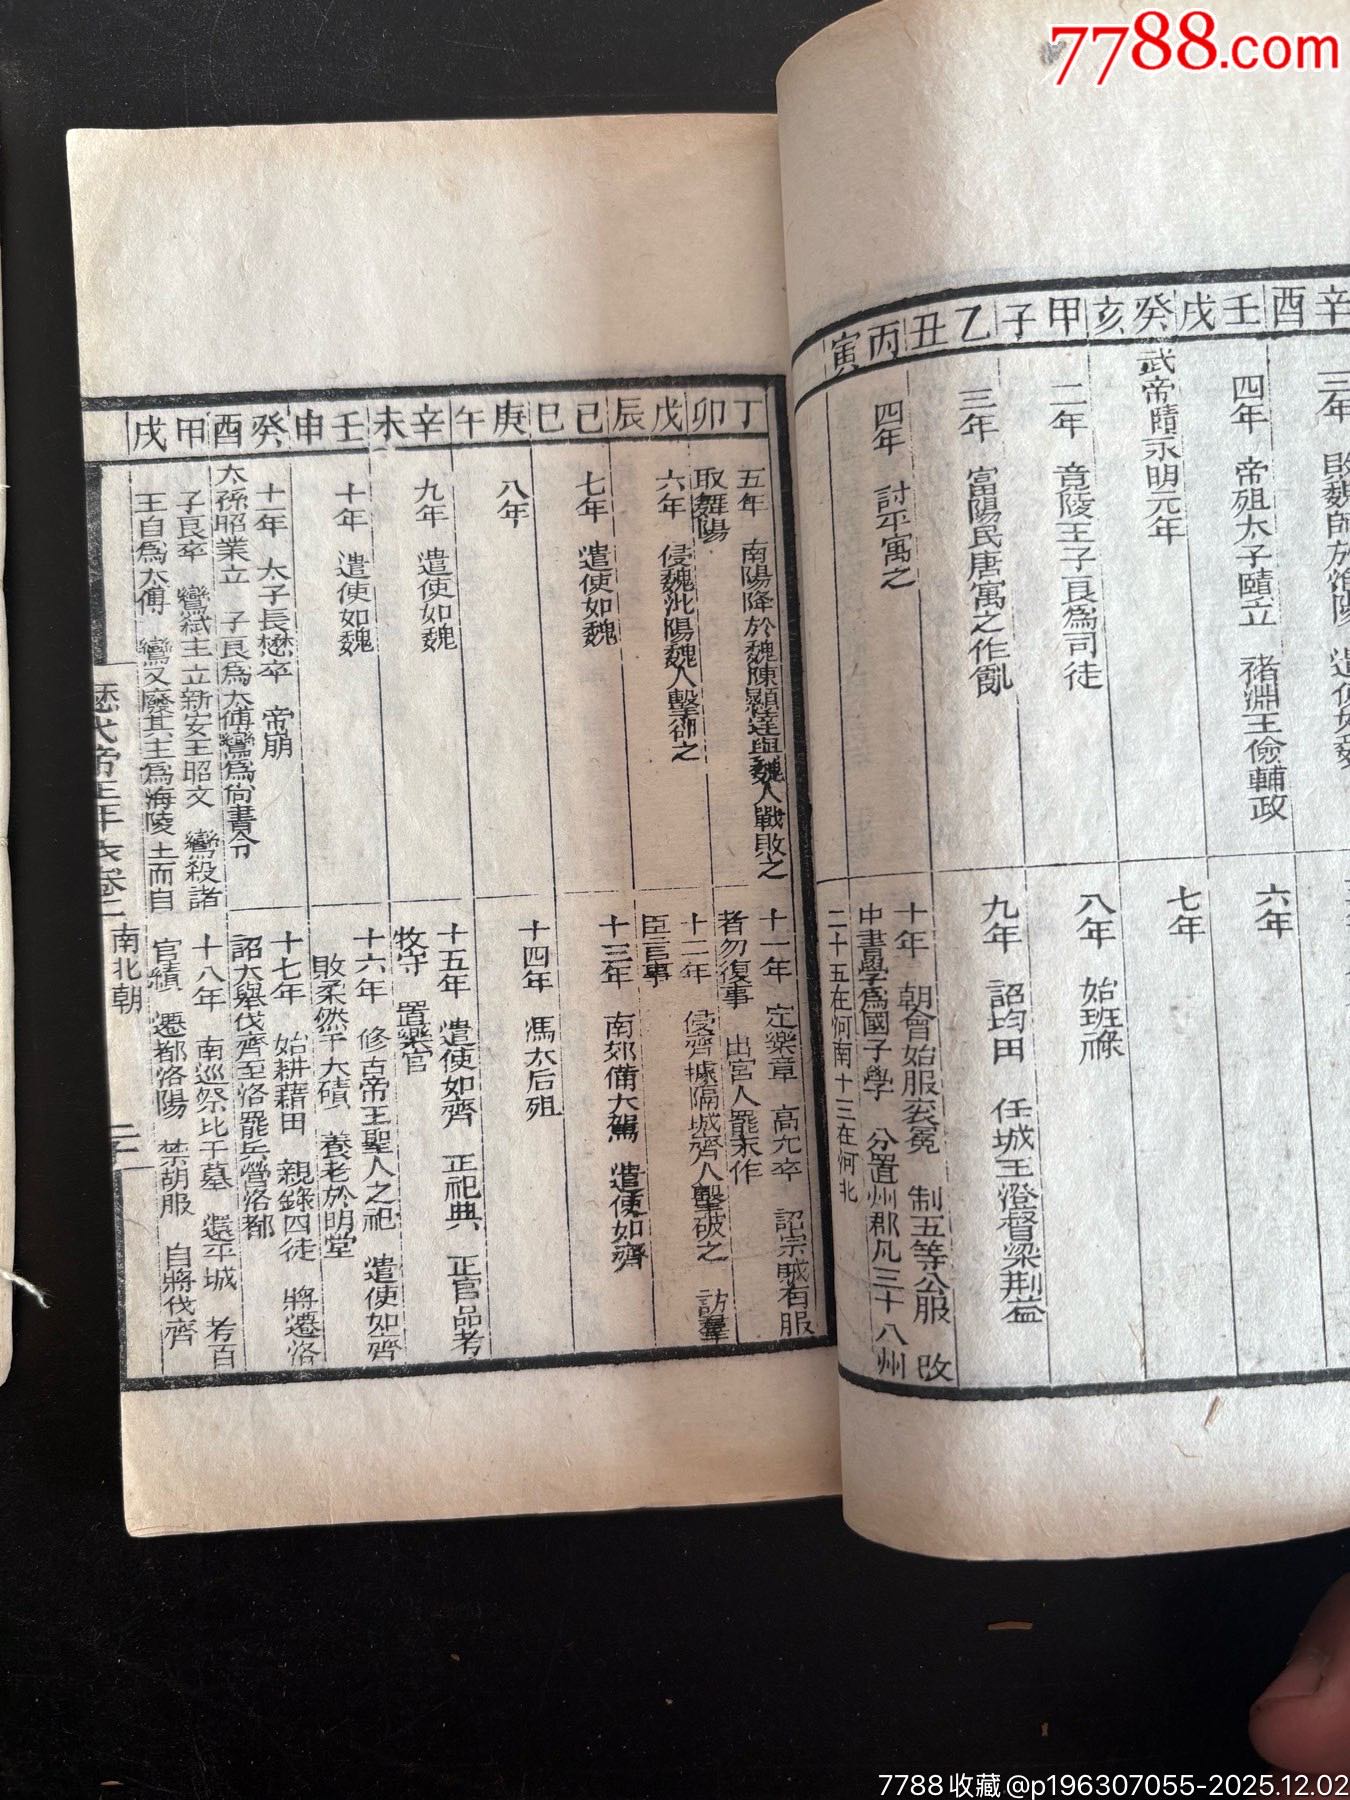 7788.com
辛酉壬戌癸亥甲子乙丑丙寅
四年 帝殂太子賾立 褚淵王儉輔政
武帝賾永明元年
二年 竟陵王子良為司徒
三年 富陽民唐寓之作亂
四年 討平寓之
六年
七年
八年 始班祿
九年 詔均田 任城王澄督梁荆益
十年 朝會始服袞冕 制五等公服 改
中書學爲國子學 分置州郡凡三十八州
二十五在河南十三在河北
丁卯戊辰己巳庚午辛未壬申癸酉甲戌
五年 南陽降於魏陳顯達與魏人戰敗之
取舞陽
六年 侵魏沘陽魏人擊卻之
七年 遣使如魏
八年
九年 遣使如魏
十年 遣使如魏
十一年 太子長懋卒 帝崩
太孫昭業立 子良爲太傅鸞爲尙書令
子良卒 鸞弒主立新安王昭文 鸞殺諸
王自爲太傅 鸞又廢其主爲海陵王而自
十一年 定樂章 高允卒 詔宗戚有服
者勿復事 出宮人罷末作
十二年 侵齊據隔城齊人擊破之 訪羣
臣言事
十三年 南郊備大駕 遣使如齊
十四年 馮太后殂
十五年 遣使如齊 正祀典 正官品考
牧守 置樂官
十六年 修古帝王聖人之祀 遣使如齊
敗柔然于大磧 養老於明堂
十七年 始耕藉田 親錄囚徒 將遷洛
詔大舉伐齊至洛罷兵營洛都
十八年 南巡祭比干墓 還平城 考百
官績 遷都洛陽 禁胡服 自將伐齊
歷代帝王年表卷二 南北朝
7788收藏@p196307055-2025.12.02